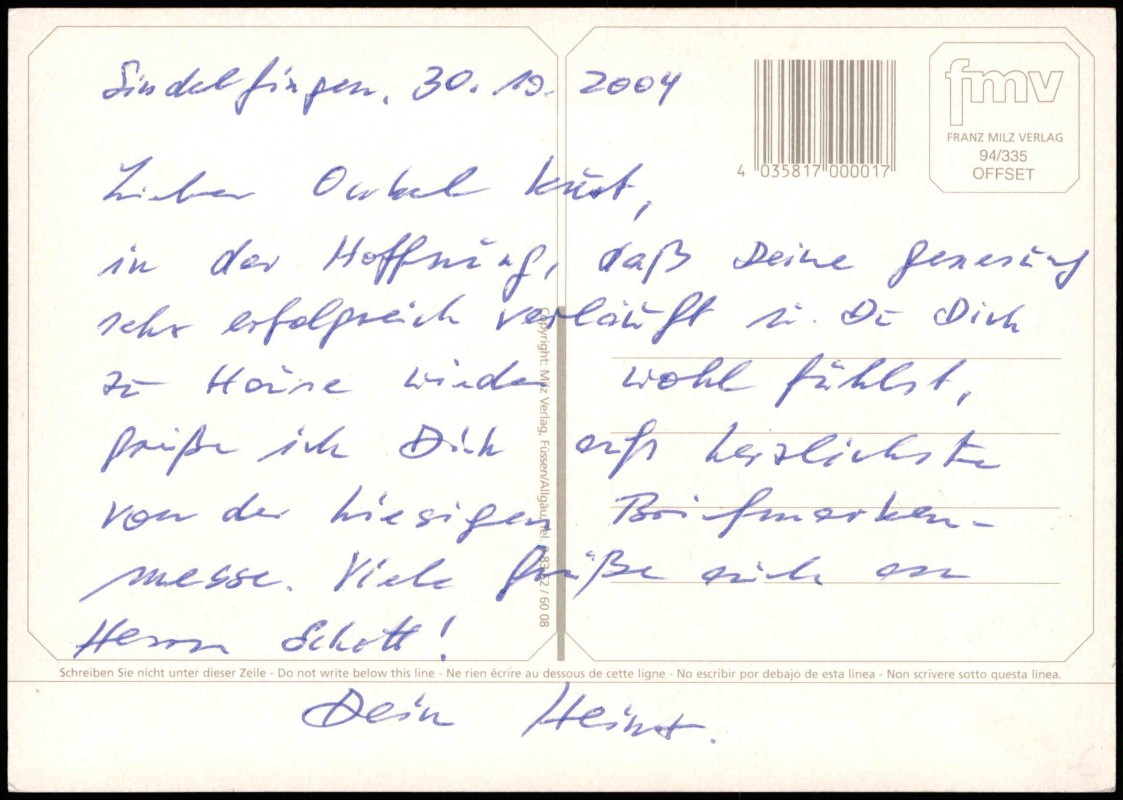 Sindelfingen, 30. 10. 2004
Lieber Onkel Kurt,
in der Hoffnung, daß Deine Genesung
sehr erfolgreich verläuft u. Du Dich
zu Hause wieder wohl fühlst,
grüße ich Dich aufs herzlichste
von der hiesigen Briefmarken-
messe. Viele Grüße auch an
Herrn Schott!
Dein
4 035817 000017
fmv
FRANZ MILZ VERLAG
94/335
OFFSET
Copyright: Milz Verlag, Füssen/Allgäu, Tel. 0 83 62 / 60 08
Schreiben Sie nicht unter dieser Zeile - Do not write below this line - Ne rien écrire au dessous de cette ligne - No escribir por debajo de esta linea - Non scrivere sotto questa linea.